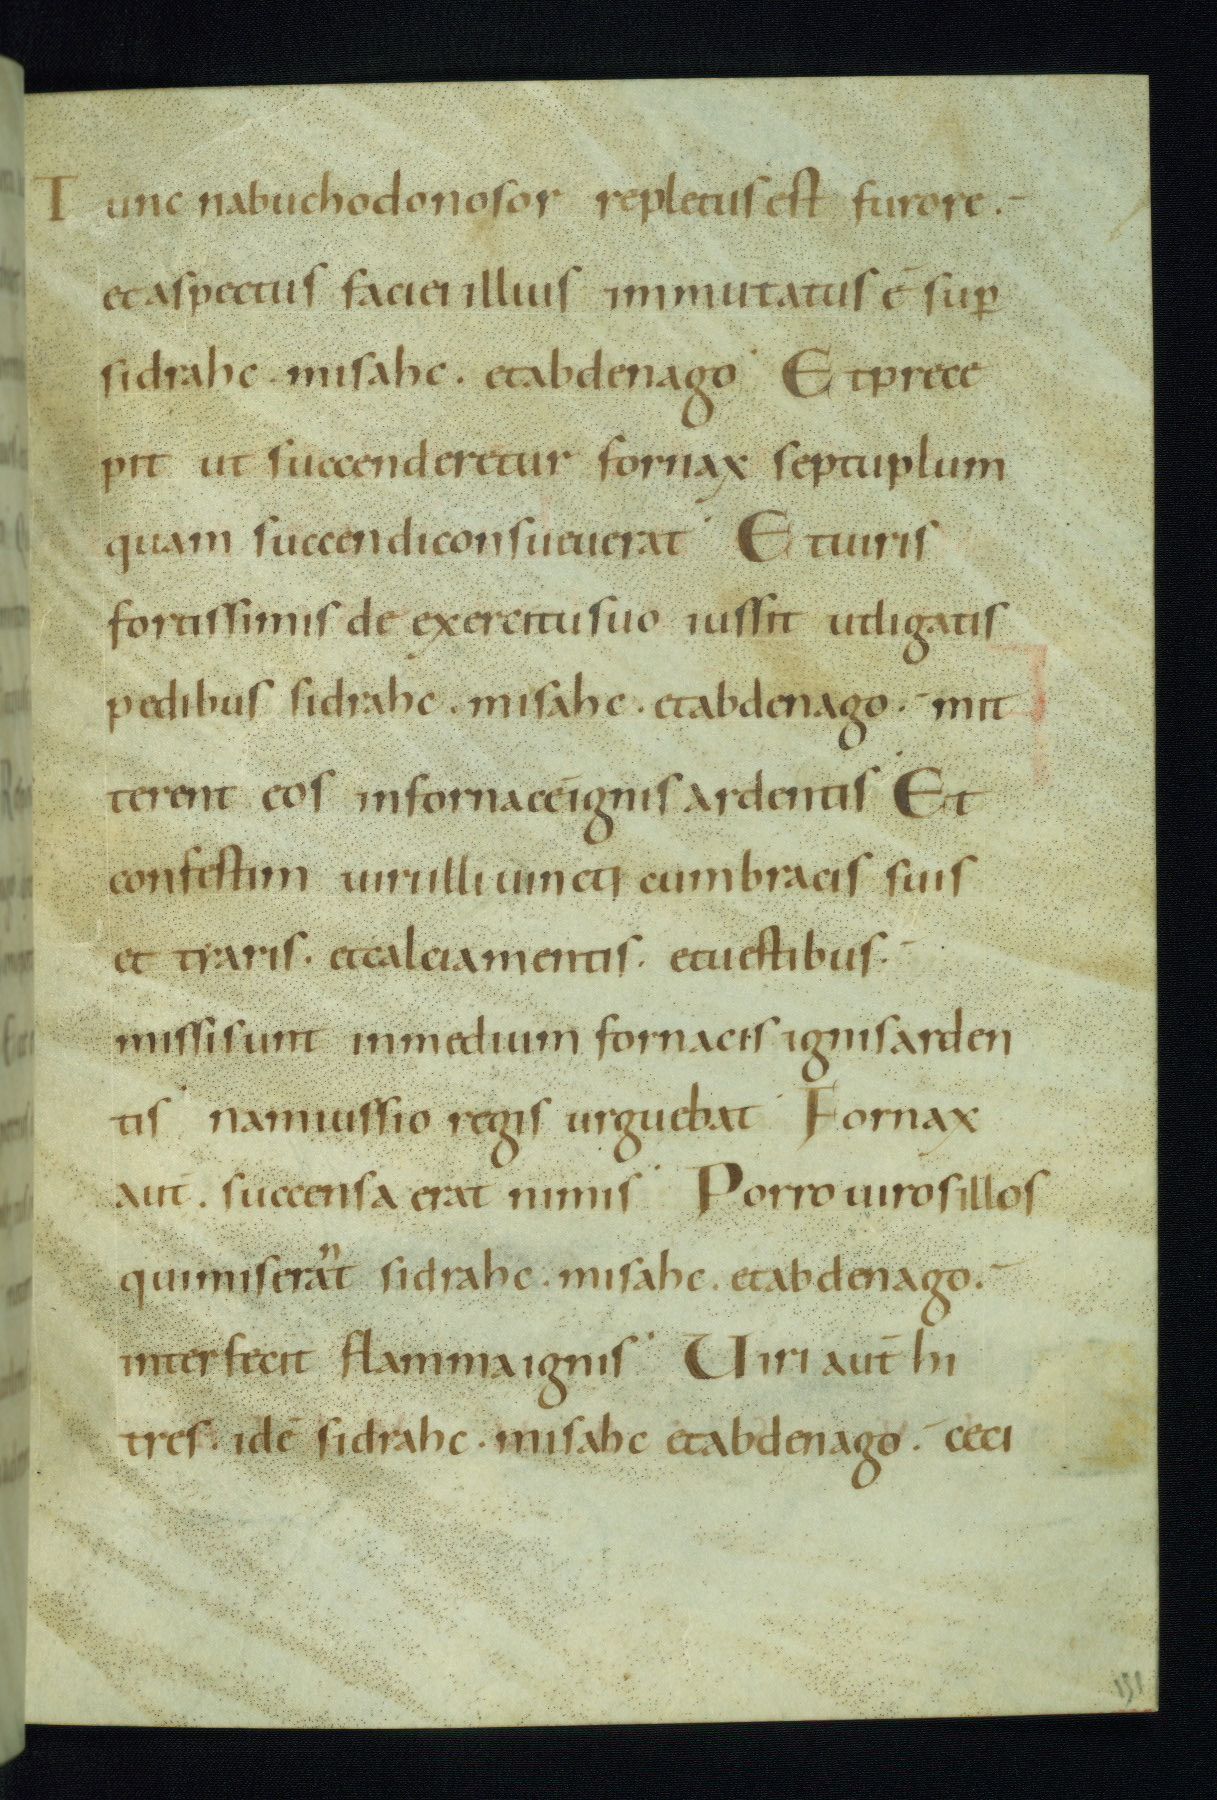 Tunc nabuchodonosor repletus est furore.
et aspectus faciei illius immutatus ē sup̄
sidrahc. misahc. et abdenago Et prece
pit ut succenderetur fornax septuplum
quam succendi consueuerat Et uiris
fortissimis de exercitu suo iussit ut ligatis
pedibus sidrahc. misahc. et abdenago. mit
terent eos in fornacē ignis ardentis Et
confestim uiri illi uincti cum bracis suis
et tyaris. et calciamentis. et uestibus.
missi sunt in medium fornacis ignis arden
tis nam iussio regis urguebat Fornax
aut̄. succensa erat nimis Porro uiros illos
qui miserant sidrahc. misahc. et abdenago.
interfecit flamma ignis Uiri aut̄ hi
tres. idē sidrahc. misahc et abdenago. ceci
151